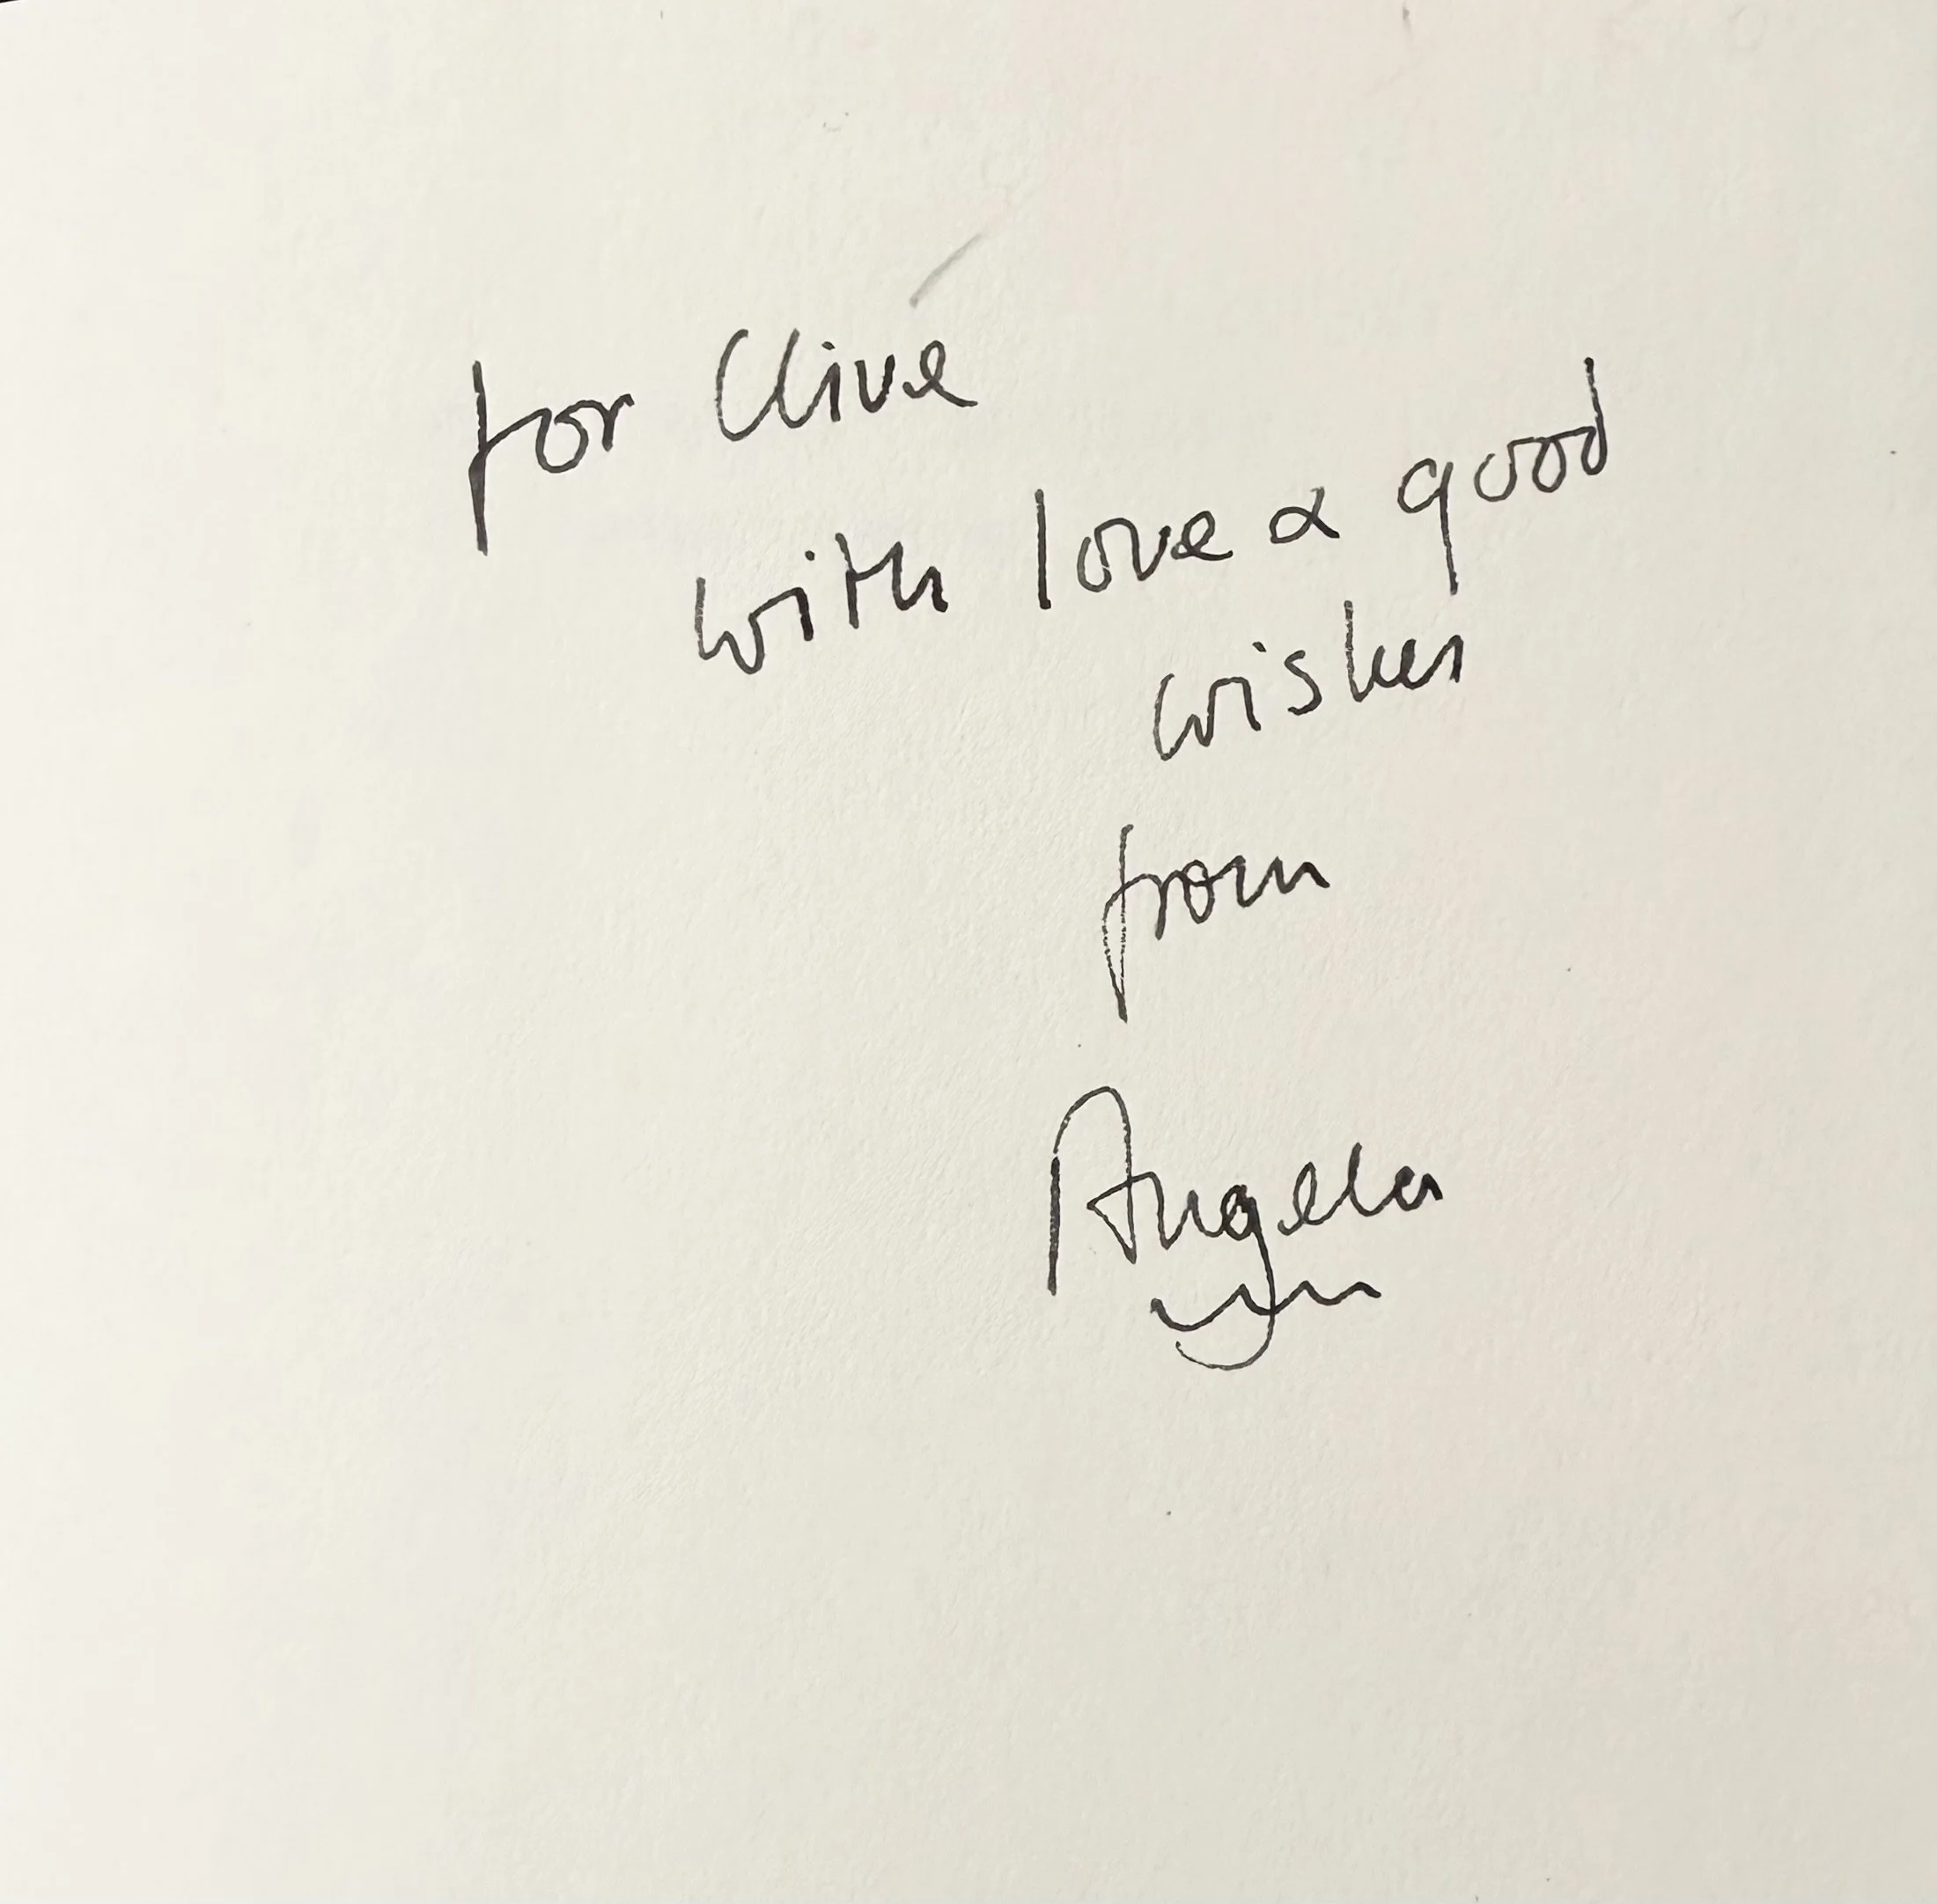 for Clive
with love & good
wishes
from
Angela